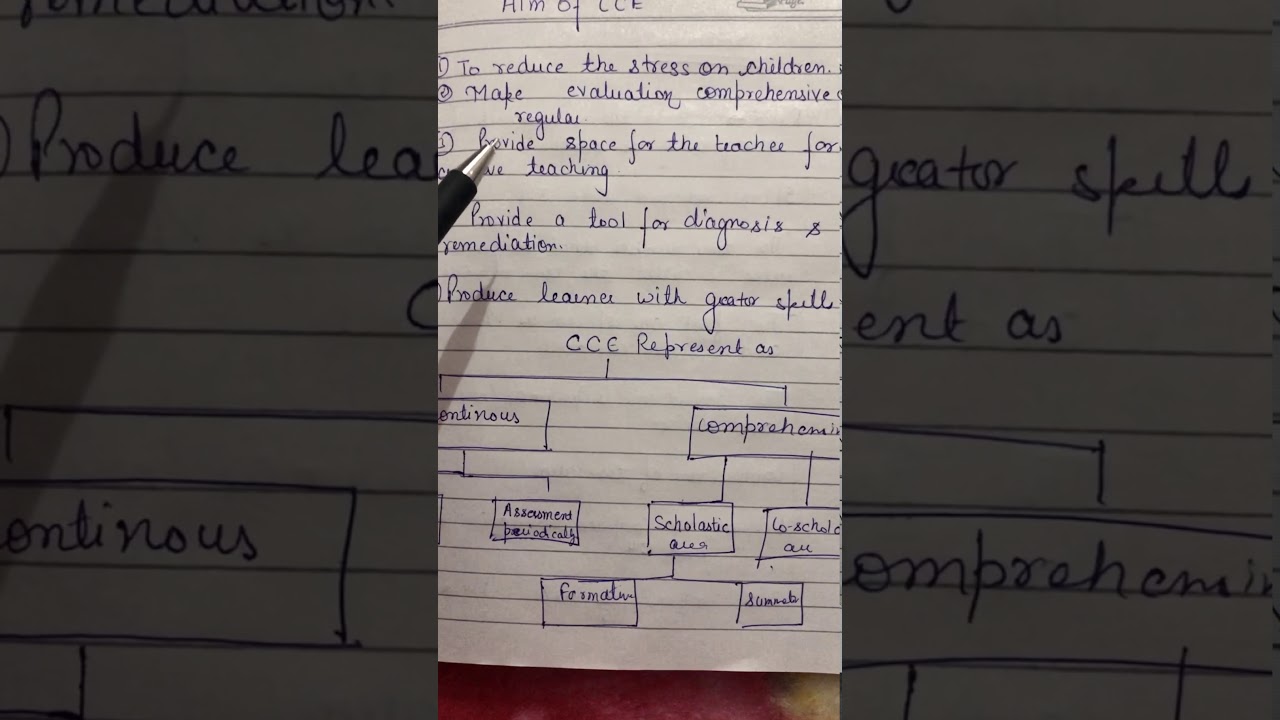 Aim of CCE
① To reduce the stress on children.
② Make evaluation comprehensive
regular
Provide space for the teacher for
teaching.
Provide a tool for diagnosis &
remediation.
Produce learner with greator skill
CCE Represent as
ontinous
Comprehensiv
Assessment
periodically
Scholastic
area
Co-schola
Formative